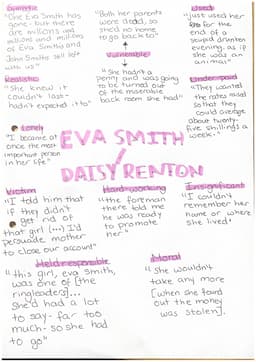 Symbolic
"One Eva Smith has
gone - but there
are millions and
millions and millions
of Eva Smiths and
John Smiths still left
with us"
"Both her parents
were dead, so
she'd no home to
go back to"
Vulnerable
"She hadn't a
penny and was going
to be turned out
of the miserable
back room she had"
Used
"just used her
for the
end of a
stupid drunken
evening, as if
she was an
animal"
Realistic
"She knew it
couldn't last-
hadn't expected it to"
Underpaid
"They wanted
the rates raised
so that they
could average
about twenty-
five shillings a
week."
Lonely
"I became at
once the most
important person
in her life"
EVA SMITH
/
DAISY RENTON
Victim
"I told him that
if they didn't
get rid of
that girl (...) I'd
persuade mother
to close our account"
Hard-working
"the foreman
there told me
he was ready
to promote
her"
Insignificant
"I couldn't
remember her
name or where
she lived"
Held responsible
"this girl, eva smith,
was one of [the
ringleaders]...
she'd had a lot
to say- far too
much- so she had
to go"
Moral
"She wouldn't
take any more
[when she found
out the money
was stolen].